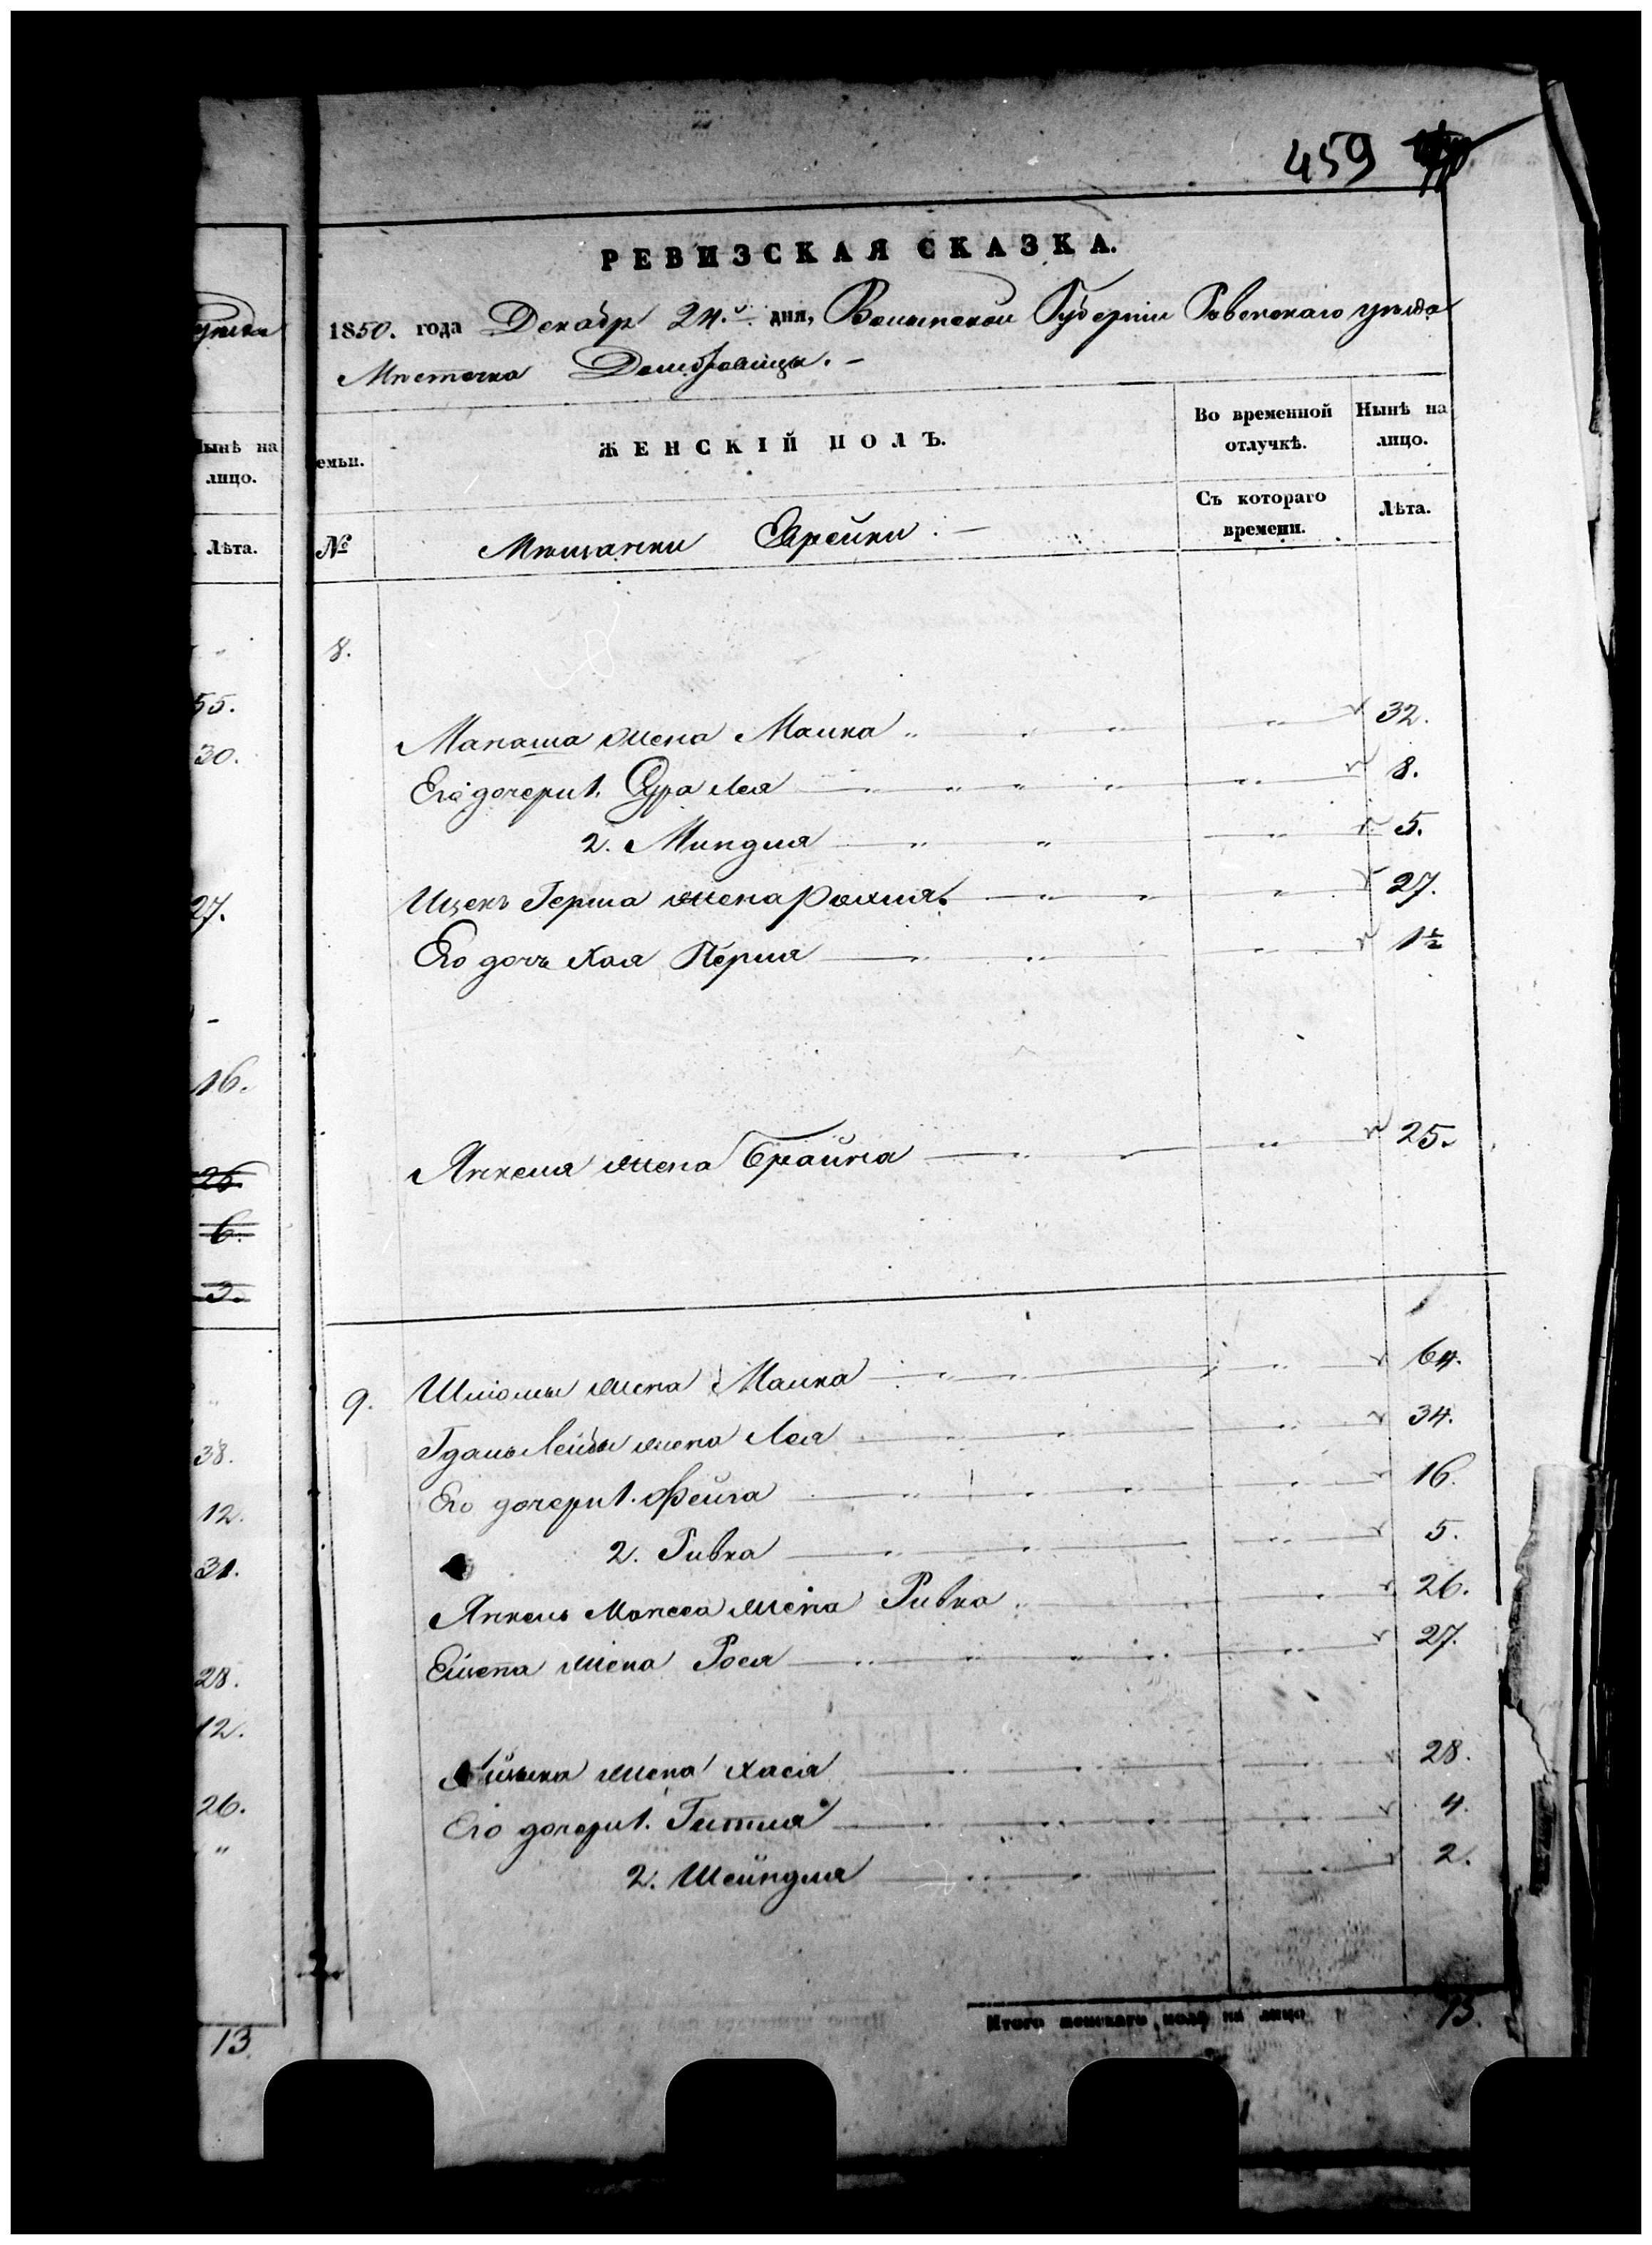 459
РЕВИЗСКАЯ СКАЗКА.
1850. года Декабр 24.го дня, Волынской Губерніи Ровенского уѣзда
Мѣстечка Домбровицы. –
емьи.
ЖЕНСКІЙ ПОЛЪ.
Во временной отлучкѣ.
Нынѣ на лицо.
№
Мѣщанки Еврейки. –
Съ котораго времени.
Лѣта.
8.
Манаша жена Малка 32.
Его дочери 1. Сура Лея 8.
2. Миндля 5.
Ицекъ Герша жена Рахля 27.
Его дочь Хая Перля 1½
Янкеля жена Брайна 25.
9. Шліомы жена Малка 64.
Гдаль Лейбы жена Лея 34.
Его дочери 1. Фейга 16.
2. Ривка 5.
Янкель Мансеа жена Ривка 26.
жена Рося 27.
жена Хася 28.
Его дочери 1. Гитля 4.
2. Шейндля 2.
Итого женскаго пола на лицо 13.
ынѣ на
лицо.
Лѣта.
55.
30.
27.
16.
26.
6.
3.
38.
12.
31.
28.
12.
26.
13